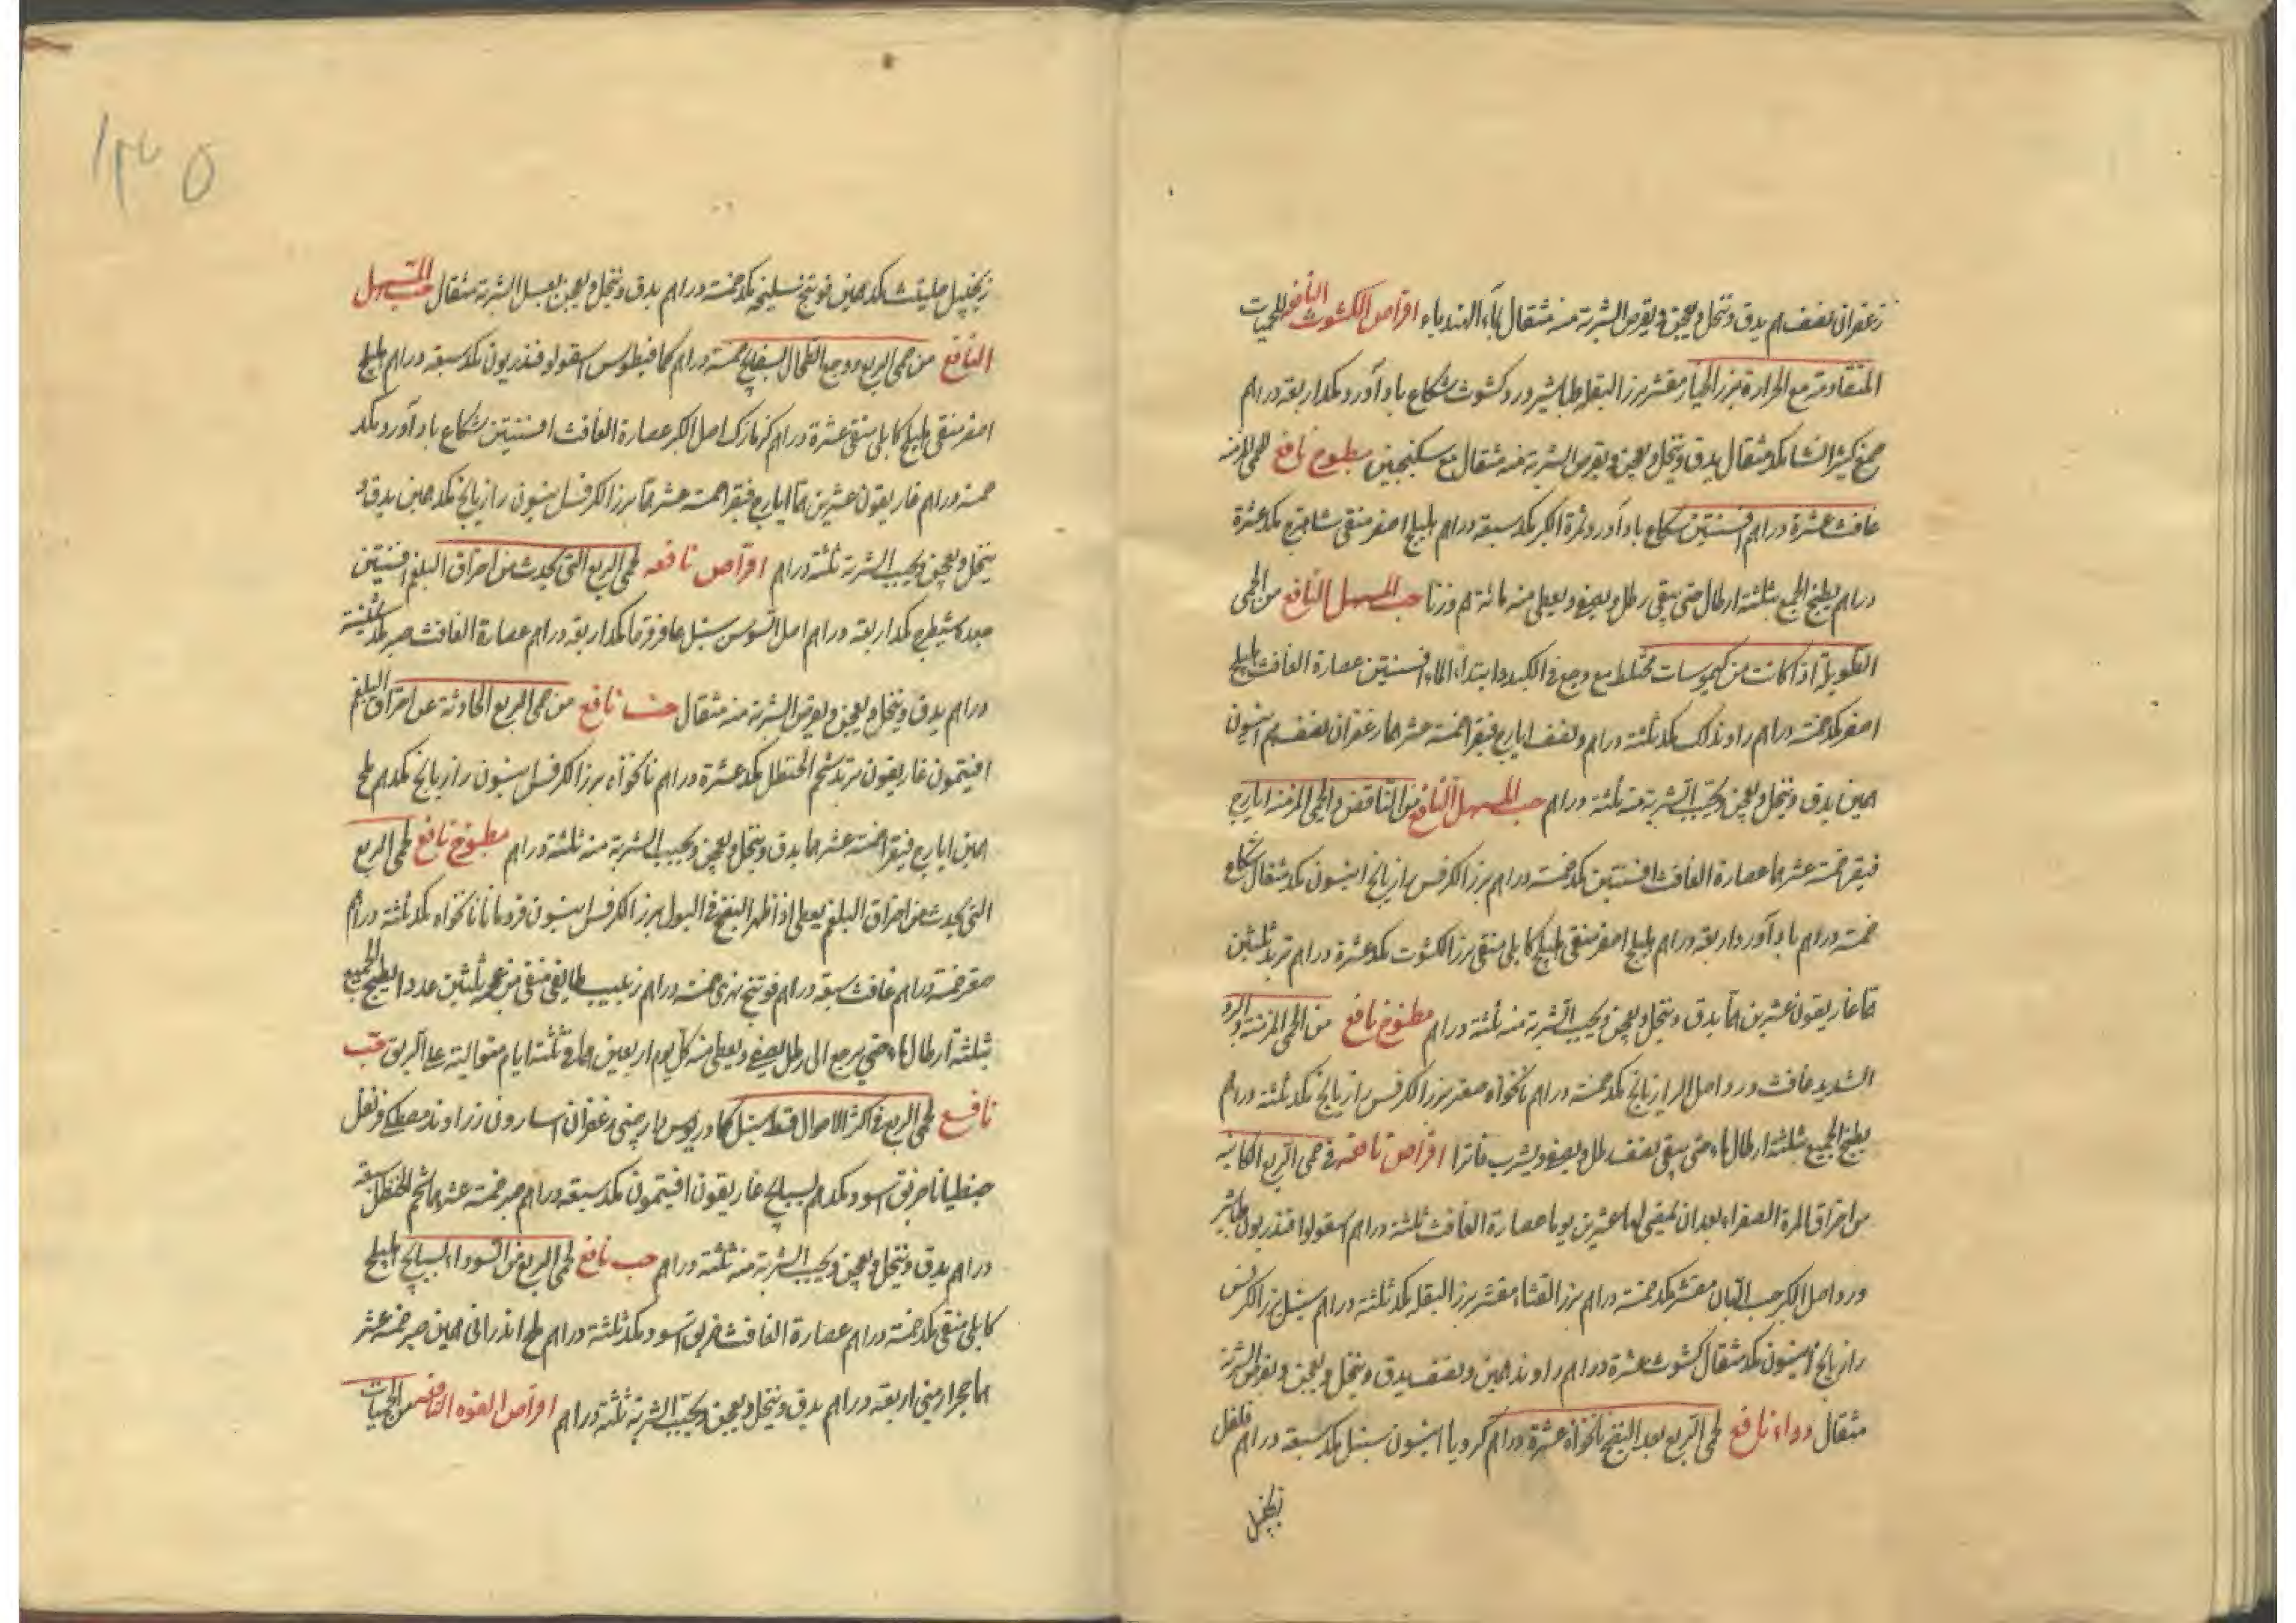 زعفران نصف هم يدق وينخل ويعجن ويقرص الشربة منه مثقال بماء الهندباء اقراص الكشوث النافع للحميات
المتقادمة مع الحرارة بزر الخيار مقشر بزر البقلة طباشير ورد كشوث شكاع باد آورد مكد اربعة دراهم
صمغ كثيرا نشا مكد مثقال يدق وينخل ويعجن ويقرص الشربة منه مثقال مع سكنجبين مطبوخ نافع للحمى المزمنه
غافث عشرة دراهم افسنتين شكاع باد آورد وثمرة الكبر مكد سبعة دراهم هليلج اصفر منقى شاهترج مكد عشرة
دراهم يطبخ الجميع بثلثة ارطال حتى يبقى رطل ويصفى ويعطى منه مائة هم وزنا حب المسهل النافع من الحمى
الطويلة اذا كانت من كيموسات مختلط مع وجع في الكبد وابتداء الماء افسنتين عصارة الغافث هليلج
اصفر مكد خمسة دراهم راوند لك مكد ثلثة دراهم ونصف ايارج فيقرا خمسة عشر هما زعفران نصف هم انيسون
همين يدق وينخل ويعجن ويحبب الشربة منه ثلثة دراهم حب المسهل النافع من النافض والحمى المزمنه ايارج
فيقرا خمسة عشر هما عصارة الغافث افسنتين مكد خمسة دراهم بزر الكرفس رازيانج انيسون مكد مثقال شكاع
خمسة دراهم باد آورد اربعة دراهم هليلج اصفر منقى هليلج كابلى منقى بزر الكشوت مكد عشرة دراهم تربد ثلثين
هما غاريقون عشرين هما يدق وينخل ويعجن ويحبب الشربة منه ثلثة دراهم مطبوخ نافع من الحمى المزمنة والبرد
الشديد غافث ورد اصل الرازيانج مكد خمسة دراهم نانخواه صعتر بزر الكرفس رازيانج مكد ثلثة دراهم
يطبخ الجميع بثلثة ارطال ماء حتى يبقى نصف رطل ويصفى ويشرب فاترا اقراص نافعه في حمى الربع الكاينة
من احراق المرة الصفراء بعد ان يمضى لها عشرين يوما عصارة الغافث ثلثة دراهم اسقولوا فندريون طباشير
ورد اصل الكبر حب البان مقشر مكد خمسة دراهم بزر القثاء مقشر بزر البقله مكد ثلثة دراهم سنبل بزر الكرفس
رازيانج انيسون مكد مثقال كشوث عشرة دراهم راوند همين ونصف يدق وينخل ويعجن ويقرص الشربة
مثقال دواء نافع لحمى الربع بعد النضج نانخواه عشرة دراهم كرويا انيسون سنبل مكد سبعة دراهم فلفل
زنجبيل
١٣٥
زنجبيل حلتيت مكد همين فوتنج سليخه مكد خمسة دراهم يدق وينخل ويعجن بعسل الشربة مثقال حب المسهل
النافع من حمى الربع ووجع الطحال بسفايج خمسة دراهم كمافيطوس اسقولو فندريون مكد سبعة دراهم هليلج
اصفر منقى هليلج كابلى منقى عشرة دراهم كزمازك اصل الكبر عصارة الغافث افسنتين شكاع باد آورد مكد
خمسة دراهم غاريقون عشرين هما ايارج فيقرا خمسة عشر هما بزر الكرفس انيسون رازيانج مكد همين يدق و
ينخل ويعجن ويحبب الشربة ثلثة دراهم اقراص نافعه لحمى الربع التي يحدث من احراق البلغم افسنتين
جعده شيطرج مكد اربعة دراهم اصل السوسن سنبل عاقرقرحا مكد اربعة دراهم عصارة الغافث صبر مكد ثلثة
دراهم يدق وينخل ويعجن ويقرص الشربة منه مثقال حب نافع من حمى الربع الحادثة عن احراق البلغم
افيتمون غاريقون تربد شحم الحنظل مكد عشرة دراهم نانخواه بزر الكرفس انيسون رازيانج مكد هم ملح
همين ايارج فيقرا خمسة عشر هما يدق وينخل ويعجن ويحبب الشربة منه ثلثة دراهم مطبوخ نافع لحمى الربع
التي يحدث عن احراق البلغم يعطى اذا ظهر النضج في البول بزر الكرفس انيسون قردمانا نانخواه مكد ثلثة دراهم
صعتر خمسة دراهم غافث سبعة دراهم فوتنج نهرى خمسة دراهم زبيب طايفى منقى من عجمه ثلثين عددا يطبخ الجميع
بثلثة ارطال ماء حتى يرجع الى رطل يصفى ويعطى منه كل يوم اربعين هما في ثلثة ايام متوالية على الريق حب
نافع لحمى الربع في اكثر الاحوال قسط سنبل كمادريوس دارصيني زعفران اسارون زراوند مصطكى قرنفل
جنطيانا خربق اسود مكد هم بسبايج غاريقون افيتمون مكد سبعة دراهم صبر خمسة عشر هما شحم الحنظل سبعة
دراهم يدق وينخل ويعجن ويحبب الشربة منه ثلثة دراهم حب نافع لحمى الربع من السوداء بسبايج هليلج
كابلى منقى مكد خمسة دراهم عصارة الغافث خربق اسود مكد ثلثة دراهم ملح اندرانى همين صبر خمسة عشر
هما حجر ارمني اربعة دراهم يدق وينخل ويعجن ويحبب الشربة ثلثة دراهم اقراص الفوه النافعه من الحميات